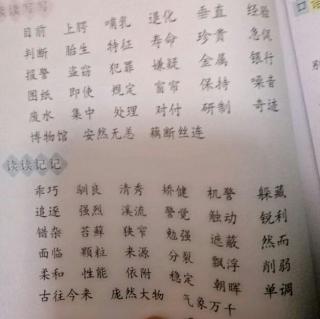 读读写写
目前 上腭 哺乳 退化 垂直 经验
判断 胎生 特征 寿命 珍贵 急促
报警 盗窃 犯罪 嫌疑 金属 银行
图纸 即使 规定 窗帘 保持 噪音
废水 集中 处理 对付 研制 奇迹
博物馆 安然无恙 藕断丝连
读读记记
乖巧 驯良 清秀 矫健 机警 躲藏
追逐 强烈 溪流 警觉 触动 锐利
错杂 苔藓 狭窄 勉强 遮蔽 然而
面临 颗粒 来源 分裂 飘浮 削弱
柔和 性能 依附 稳定 朝晖 单调
古往今来 庞然大物 气象万千